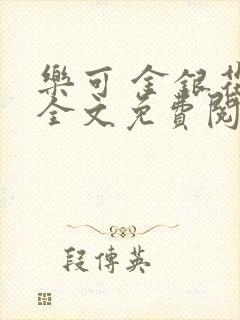 樂可 金銀花
全文免費閱
段傳英